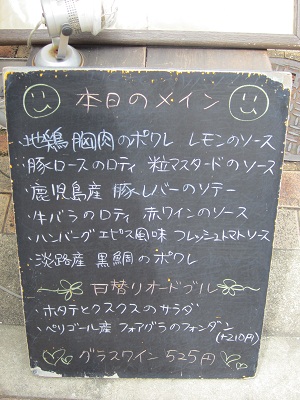 本日のメイン
・地鶏胸肉のポワレ レモンのソース
・豚ロースのロティ 粒マスタードのソース
・鹿児島産 豚レバーのソテー
・牛バラのロティ 赤ワインのソース
・ハンバーグエピス風味 フレッシュトマトソース
・淡路産 黒鯛のポワレ
日替りオードブル
・ホタテとクスクスのサラダ
・ペリゴール産 フォアグラのフォンダン
(+210円)
グラスワイン 525円